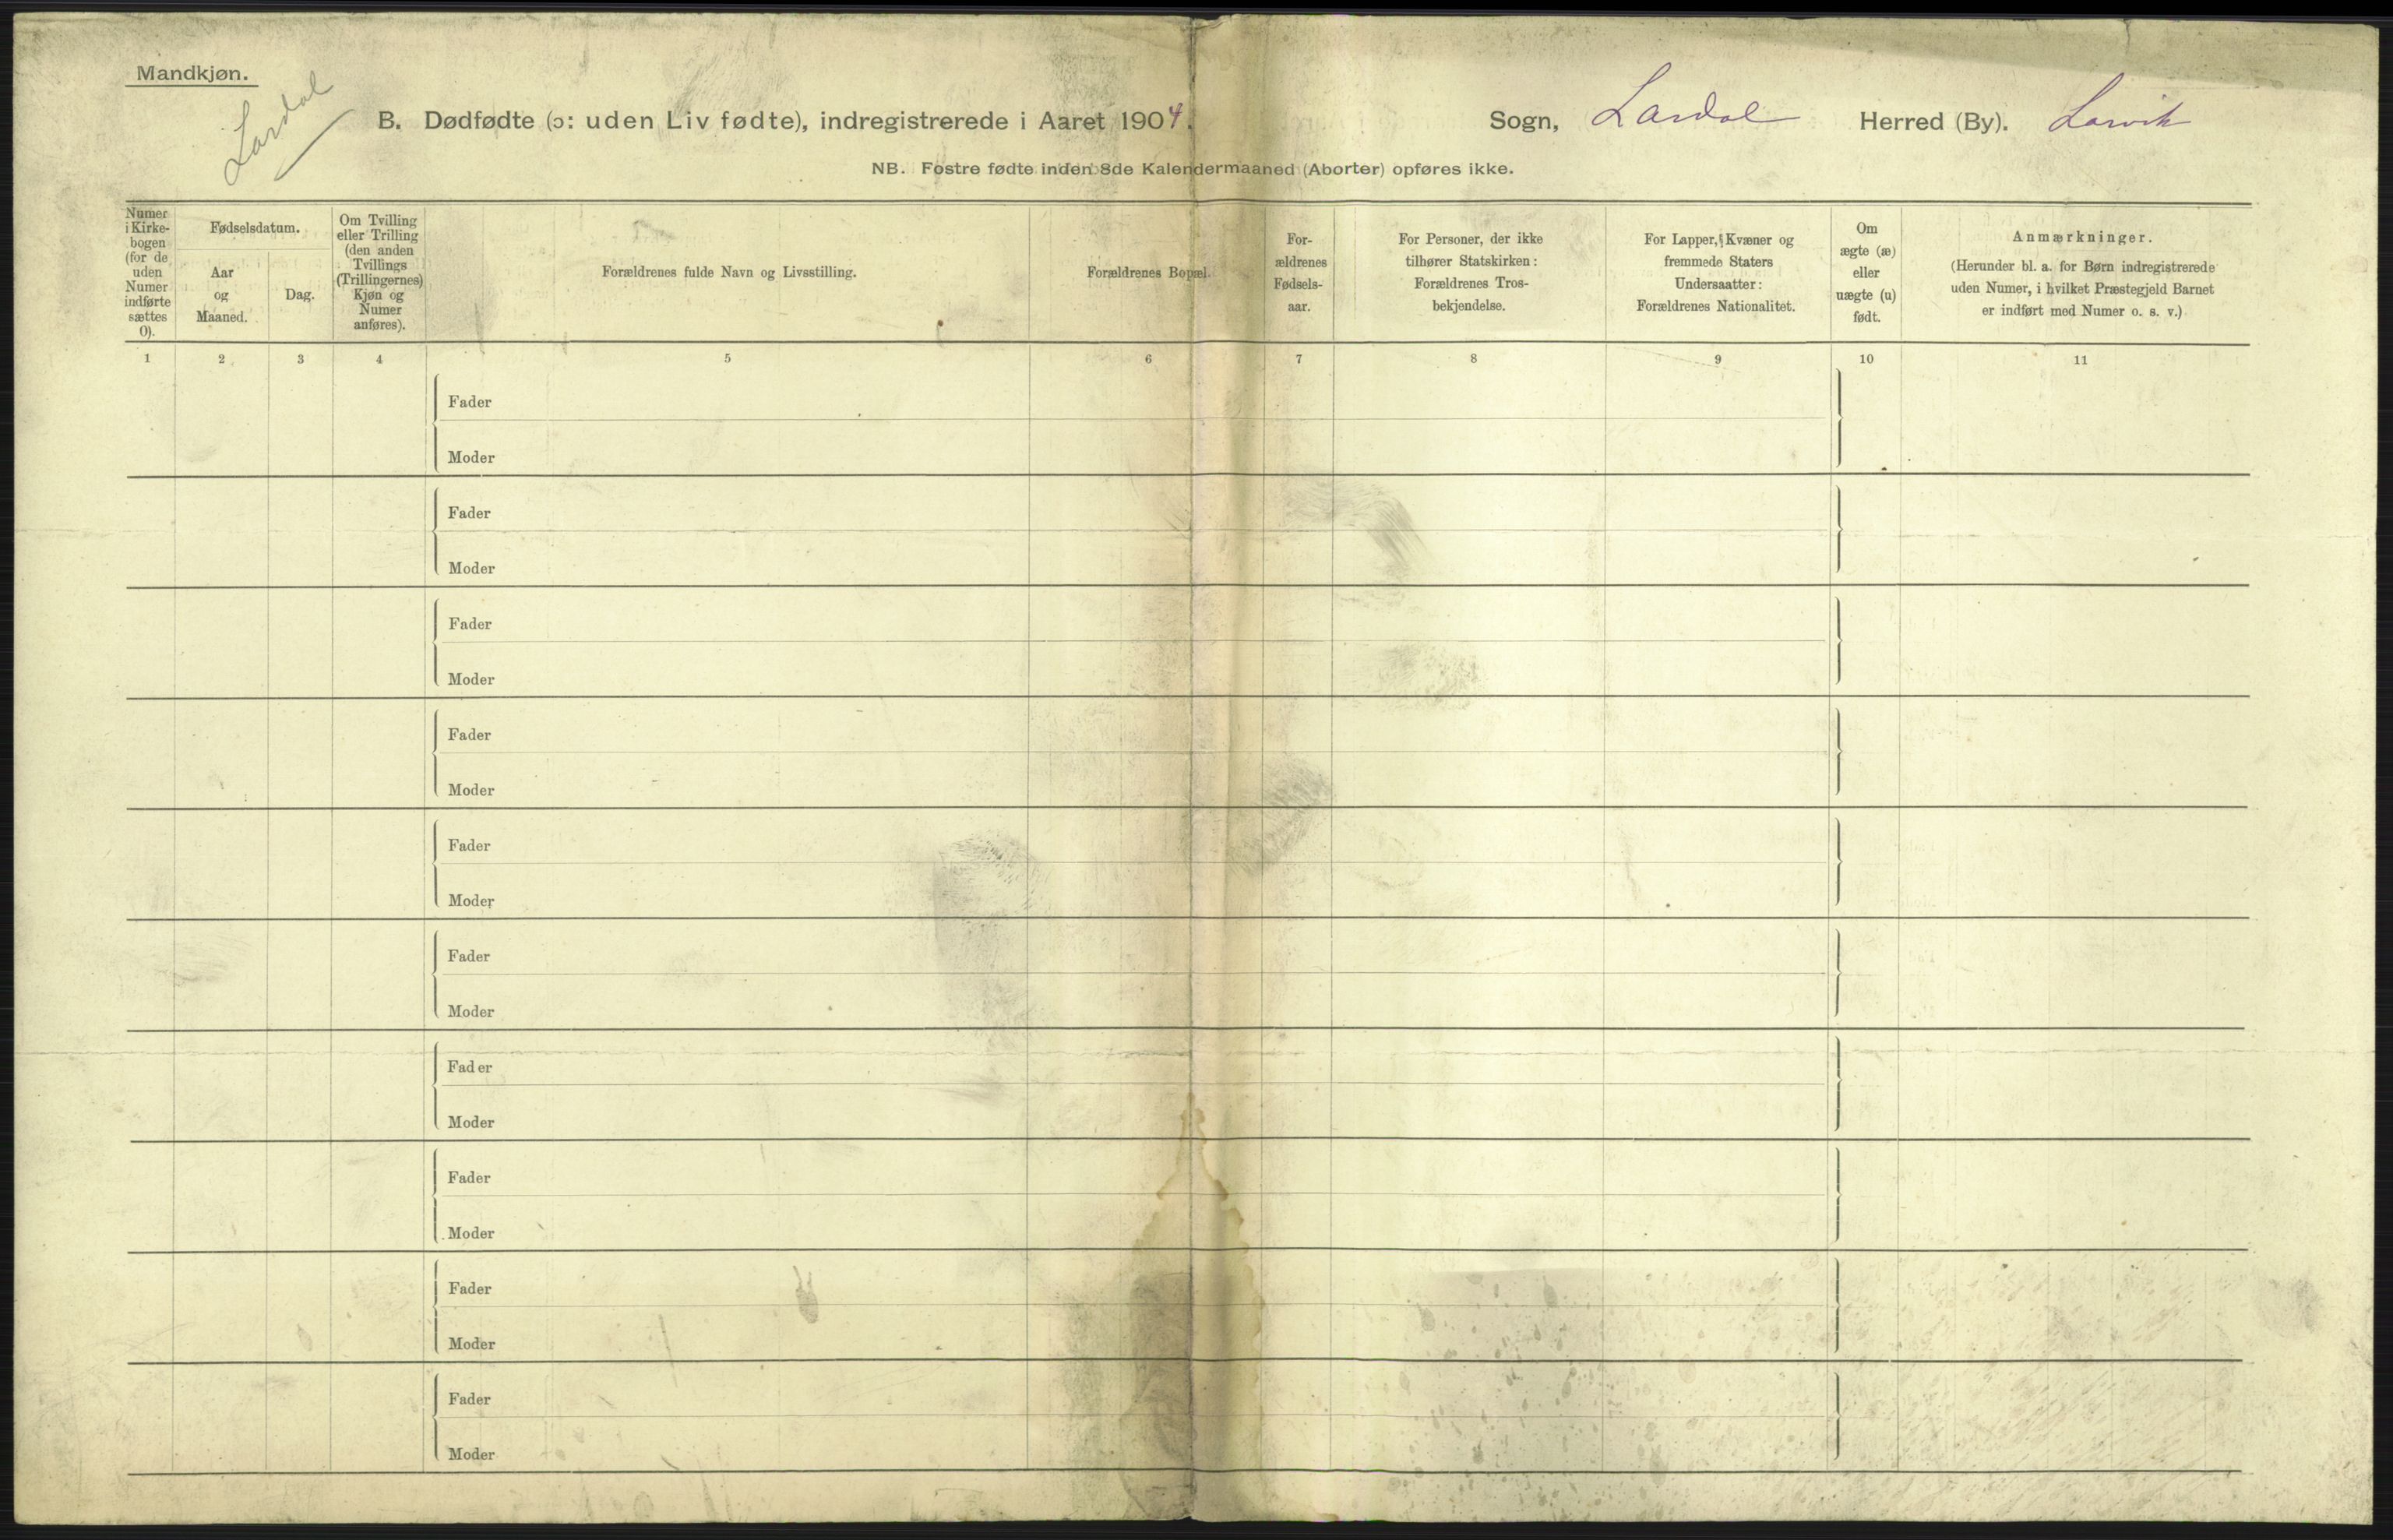 Mandkjøn.
Lardal
B. Dødfødte (ɔ: uden Liv fødte), indregistrerede i Aaret 1904.
Sogn, Lardal Herred (By). Larvik
NB. Fostre fødte inden 8de Kalendermaaned (Aborter) opføres ikke.
Numer
i Kirke-
bogen
(for de
uden
Numer
indførte
sættes
0).
Fødselsdatum.
Aar
og
Maaned.
Dag.
Om Tvilling
eller Trilling
(den anden
Tvillings
(Trillingernes)
Kjøn og
Numer
anføres).
Forældrenes fulde Navn og Livsstilling.
Forældrenes Bopæl.
For-
ældrenes
Fødsels-
aar.
For Personer, der ikke
tilhører Statskirken:
Forældrenes Tros-
bekjendelse.
For Lapper, Kvæner og
fremmede Staters
Undersaatter:
Forældrenes Nationalitet.
Om
ægte (æ)
eller
uægte (u)
født.
Anmærkninger.
(Herunder bl. a. for Børn indregistrerede
uden Numer, i hvilket Præstegjeld Barnet
er indført med Numer o. s. v.)
1 2 3 4 5 6 7 8 9 10 11
Fader
Moder
Fader
Moder
Fader
Moder
Fader
Moder
Fader
Moder
Fader
Moder
Fader
Moder
Fader
Moder
Fader
Moder
Fader
Moder